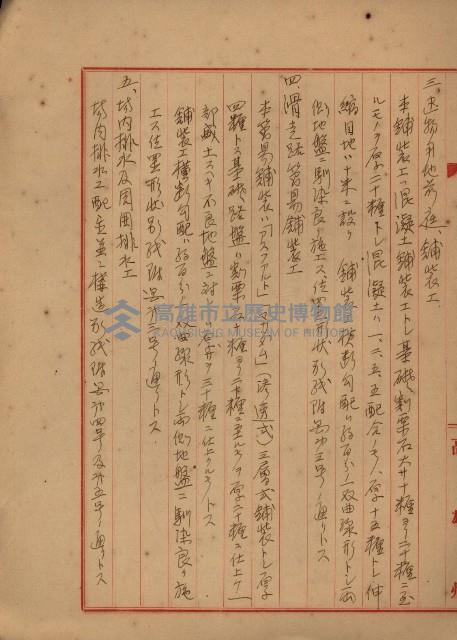 三、建物用地前庭、舗装工
本舗装工ハ混凝土舗装工トシ基礎割栗石大サ十糎ヨリ二十糎ニ至
ルモノヲ厚二十糎トシ混凝土ハ一、二、五、五配合ノモノ、厚十五糎トシ伸
縮目地ハ十米ニ設ケ舗装横断勾配ハ双曲線形トシ両
側地盤ニ馴染良ク施工ス、位置形状別紙附図第三号ノ通リトス
四、滑走路簡易舗装工
本簡易舗装ハ「アスファルト」(浸透式)三層式舗装トシ厚
四糎トス基礎路盤ハ割栗
二十糎ニ至ルモノヲ厚二十糎ニ仕上ケ一
部盛土又ハ不良地盤ニ対シ三十糎ニ仕上クルモノトス
舗装工横断勾配ハ双曲線形トシ両側地盤ニ馴染良ク施
工ス位置形状別紙附図第三号ノ通リトス
五、場内排水及周囲排水工
場内排水ノ配置並ニ構造別紙附図第四号及第五号ノ通リトス
高雄州
高雄市立歴史博物館
KAOHSIUNG MUSEUM OF HISTORY